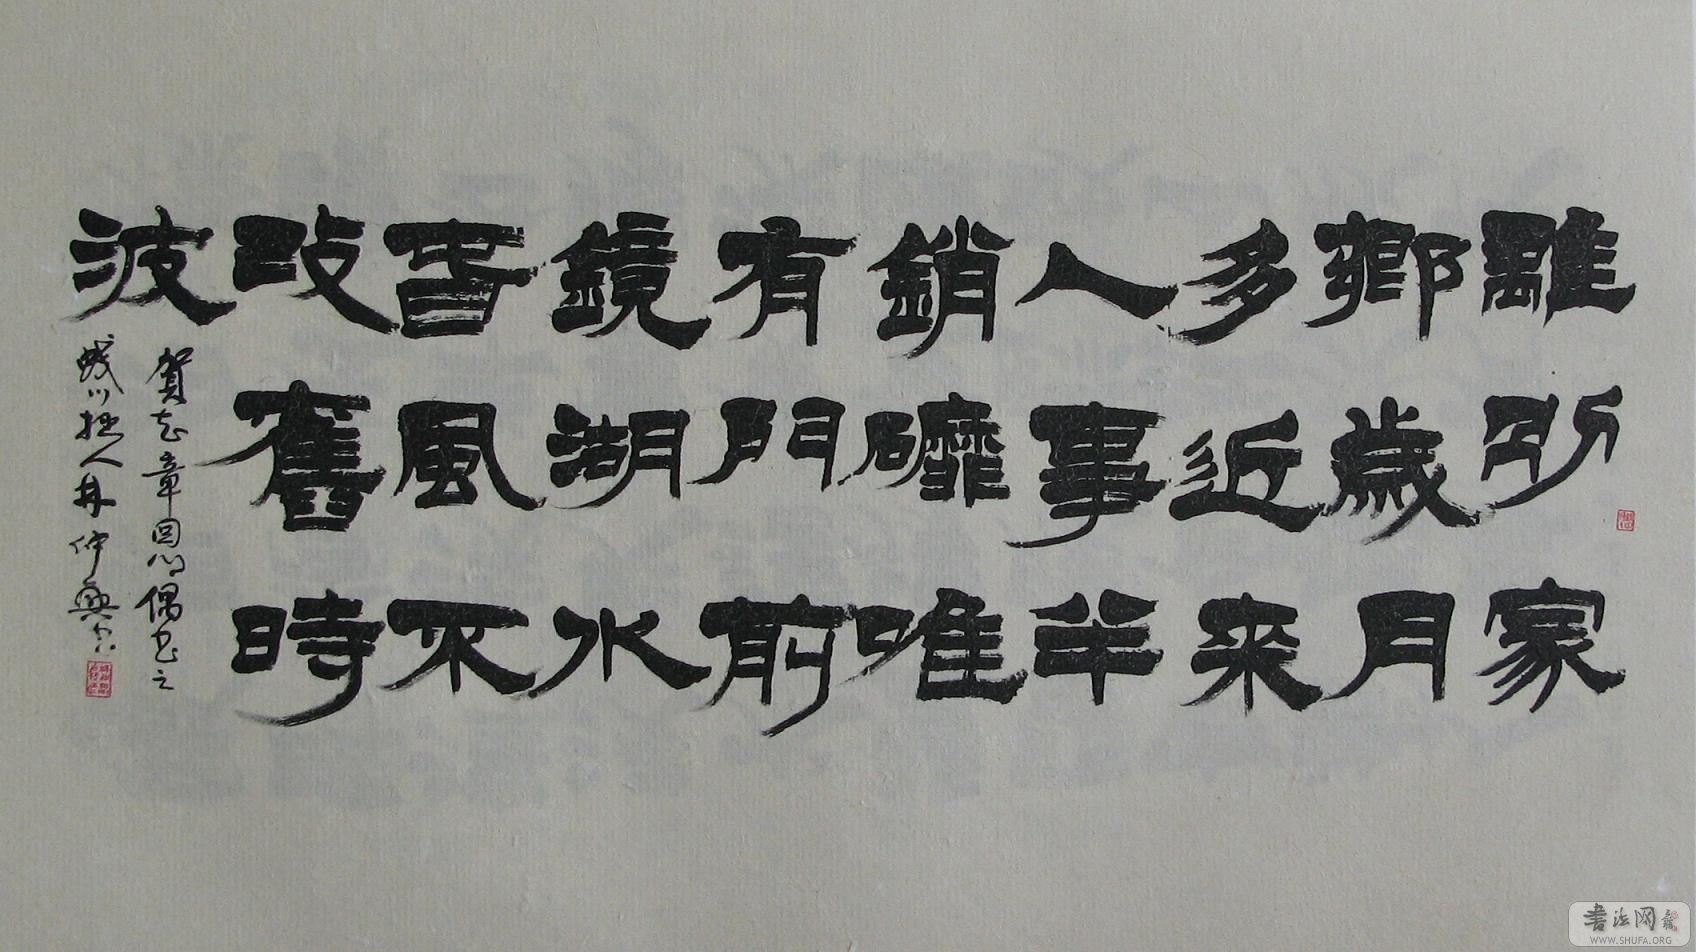 離別家
鄉歲月
多近來
人事半
銷䃺唯
有門前
鏡湖水
春風不
改舊時
波
賀志章回鄉偶書之
川拙人仲興
書法网
WWW.SHUFA.ORG